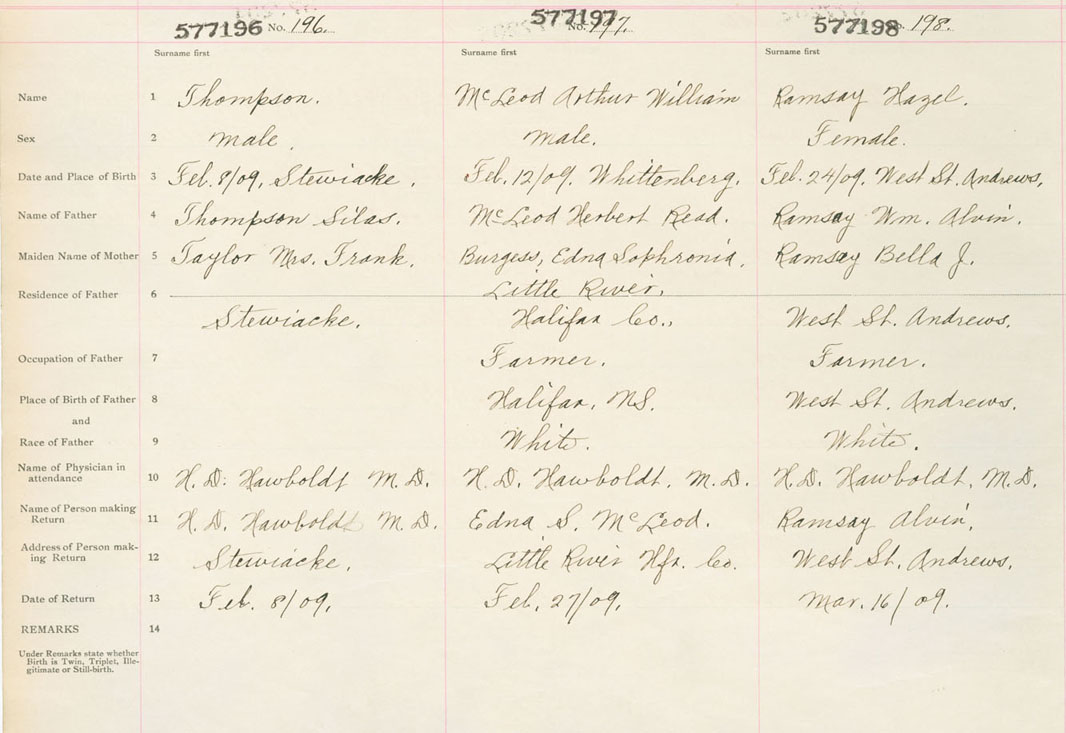 577196 No. 196. 577197 No. 197. 577198 No. 198.
Surname first Surname first Surname first
Name 1 Thompson. McLeod Arthur William Ramsay Hazel.
Sex 2 Male. Male. Female.
Date and Place of Birth 3 Feb. 8/09, Stewiacke. Feb. 12/09. Whittenberg. Feb. 24/09. West St. Andrews,
Name of Father 4 Thompson Silas. McLeod Herbert Read. Ramsay Wm. Alvin.
Maiden Name of Mother 5 Taylor Mrs. Frank. Burgess, Edna Sophronia. Ramsay Bella J.
Residence of Father 6 Little River,
Stewiacke. Halifax Co., West St. Andrews.
Occupation of Father 7 Farmer. Farmer.
Place of Birth of Father 8 Halifax, NS. West St. Andrews.
and
Race of Father 9 White. White.
Name of Physician in
attendance 10 H. D. Hawboldt M. D. H. D. Hawboldt, M. D. H. D. Hawboldt, M. D.
Name of Person making
Return 11 H. D. Hawboldt M. D. Edna S. McLeod. Ramsay Alvin.
Address of Person mak-
ing Return 12 Stewiacke. Little River Hfx. Co. West St. Andrews.
Date of Return 13 Feb. 8/09. Feb. 27/09. Mar. 16/09.
REMARKS 14
Under Remarks state whether
Birth is Twin, Triplet, Ille-
gitimate or Still-birth.